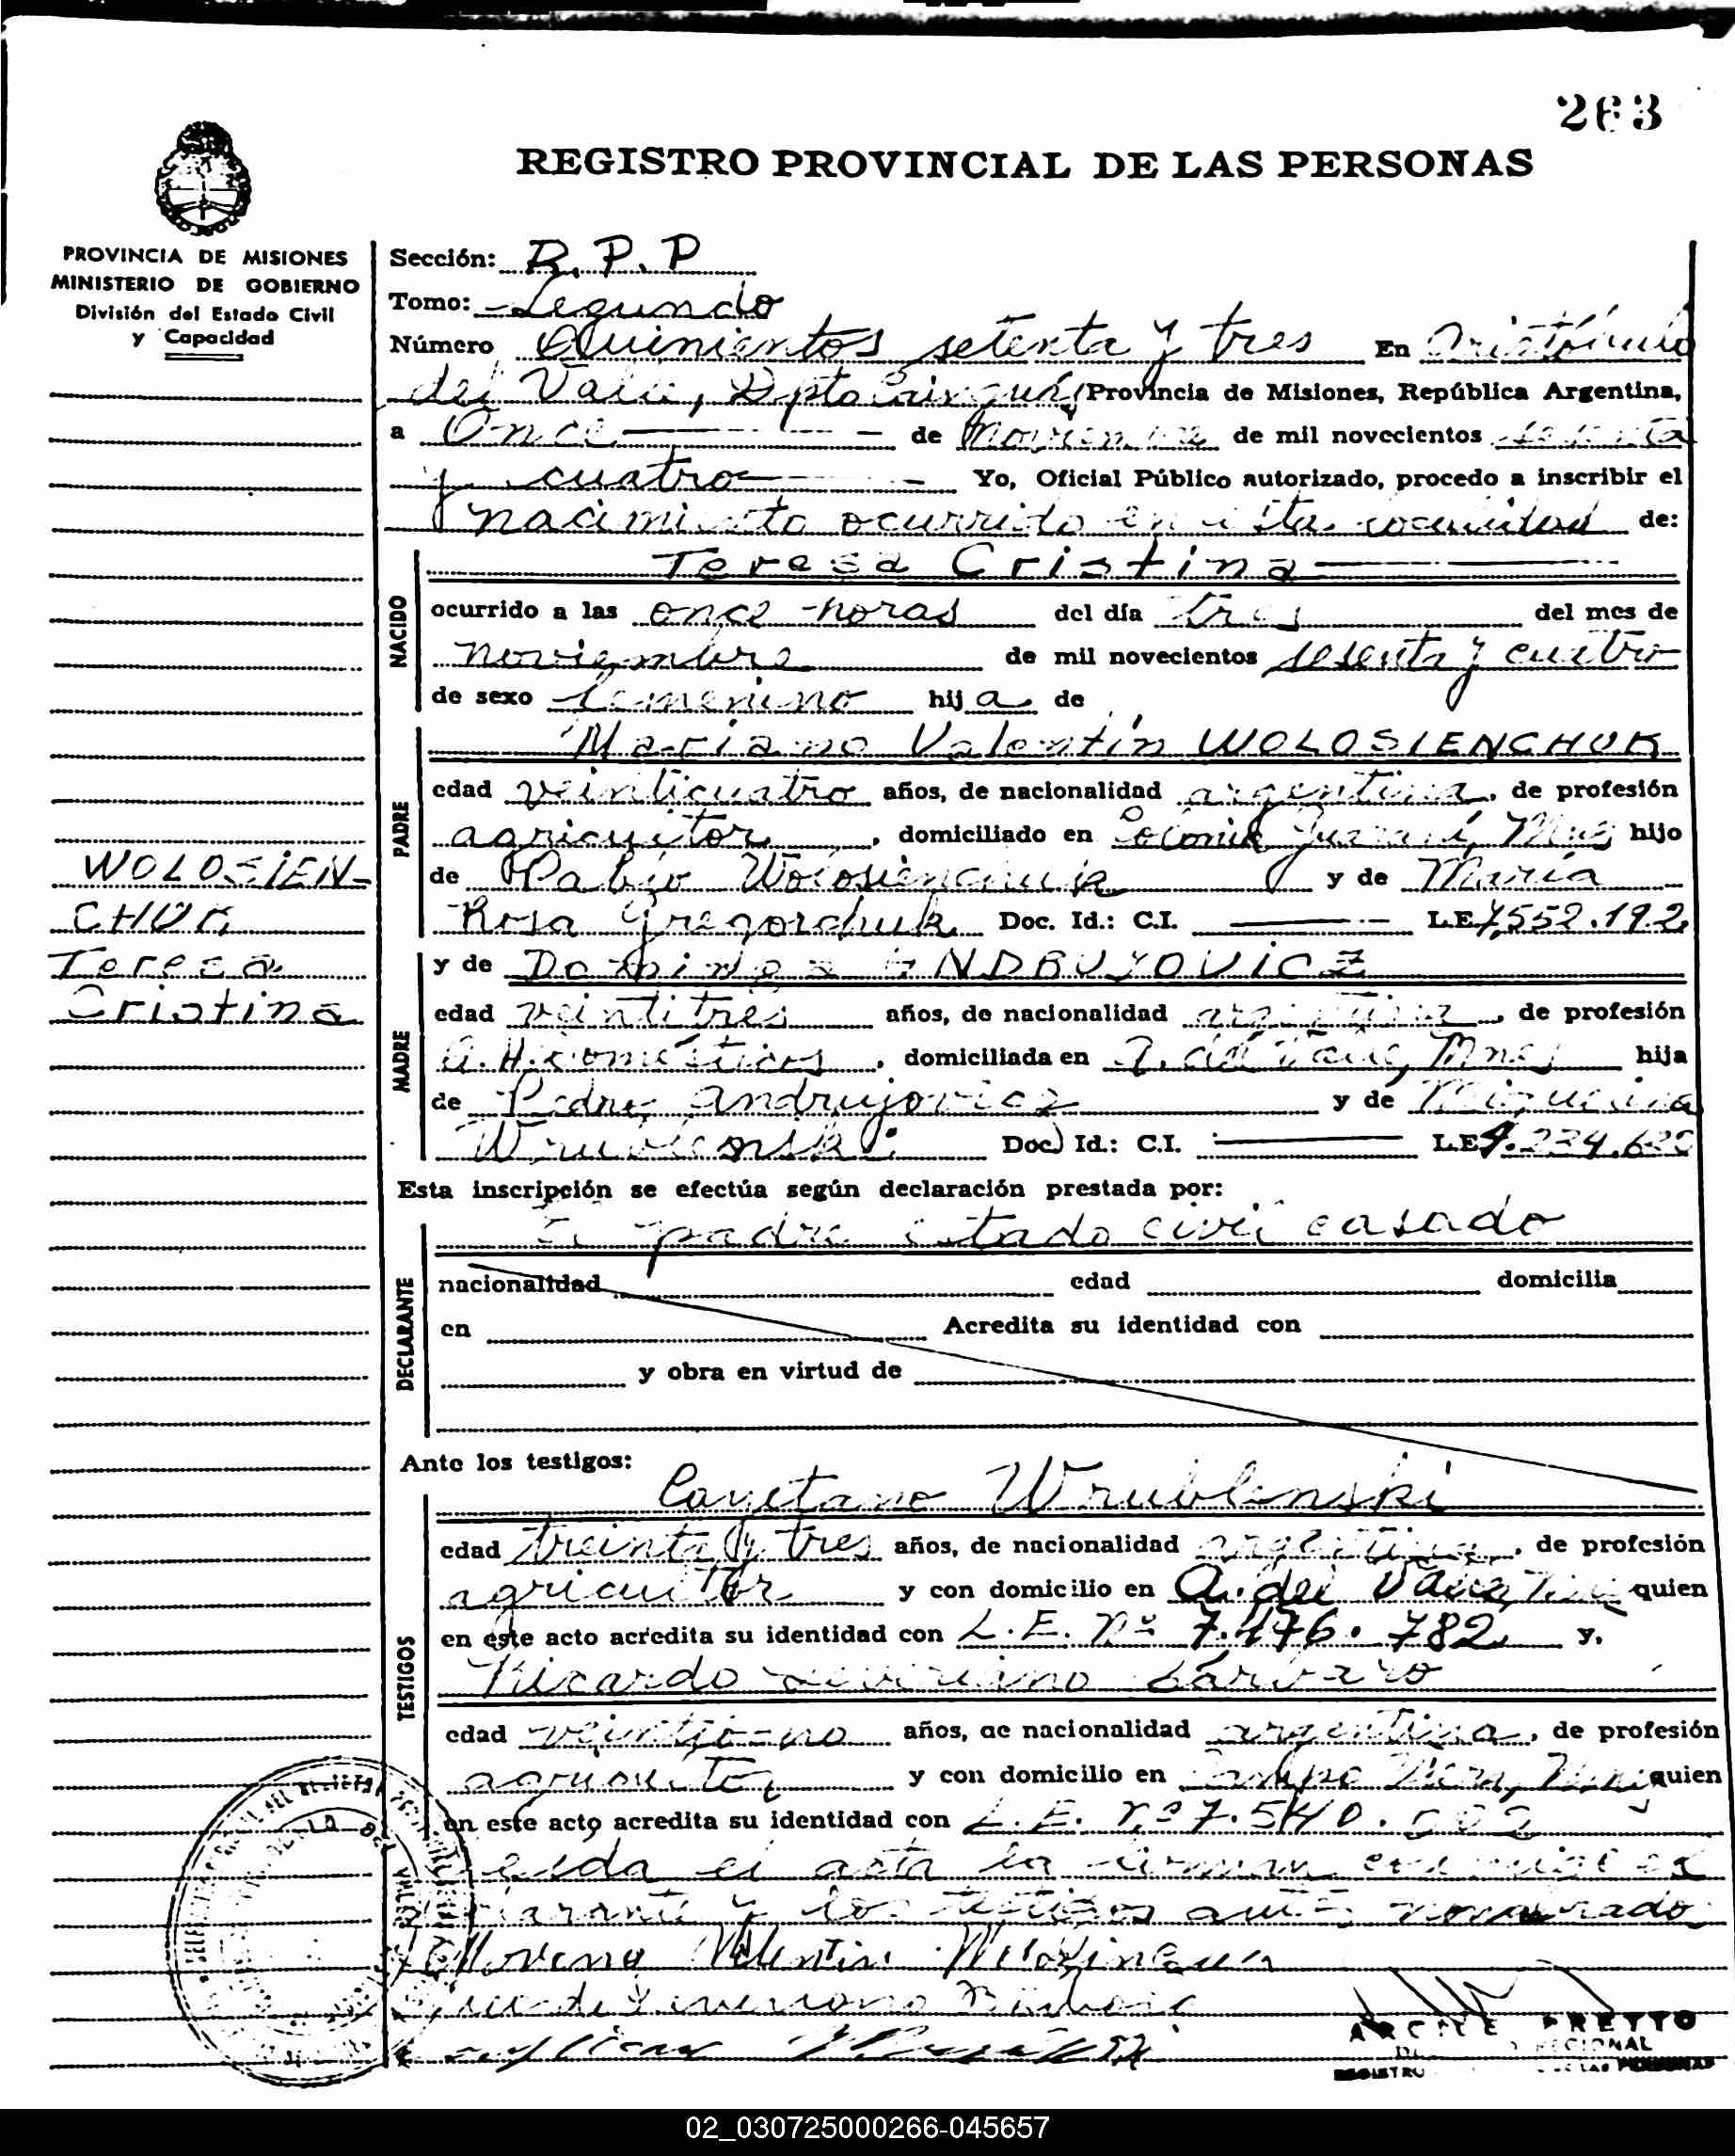 263
REGISTRO PROVINCIAL DE LAS PERSONAS
PROVINCIA DE MISIONES
MINISTERIO DE GOBIERNO
División del Estado Civil
y Capacidad
Sección: R.P.P
Tomo: Segundo
Número Quinientos setenta y tres En Aristóbulo
del Valle, Dpto Cainguás, Provincia de Misiones, República Argentina,
a Once de Noviembre de mil novecientos setenta
y cuatro Yo, Oficial Público autorizado, procedo a inscribir el
nacimiento ocurrido en esta localidad de:
NACIDO
Teresa Cristina
ocurrido a las once horas del día tres del mes de
noviembre de mil novecientos setenta y cuatro
de sexo femenino hija de
PADRE
Mariano Valentín WOLOSIENCHUK
edad veinticuatro años, de nacionalidad argentina, de profesión
agricultor, domiciliado en Colonia Guaraní, Mnes hijo
WOLOSIEN-
CHUK
Teresa
Cristina
de Pablo Wolosienchuk y de María
Rosa Gregorchuk Doc. Id.: C.I. L.E. 7,552.192
MADRE
y de ANDRUJOVICZ
edad veintitrés años, de nacionalidad argentina, de profesión
Q.H. domésticos, domiciliada en A. del Valle, Mnes hija
de Pedro Andrujovicz y de Miguelina
Wrublenski Doc. Id.: C.I. L.E.
Esta inscripción se efectúa según declaración prestada por:
DECLARANTE
El padre estado civil casado
nacionalidad edad domicilia
en Acredita su identidad con
y obra en virtud de
Ante los testigos:
TESTIGOS
Cayetano Wrublenski
edad treinta y tres años, de nacionalidad argentina, de profesión
agricultor y con domicilio en A. del Valle, Mnes quien
en este acto acredita su identidad con L.E. nº 7.476.782 y,
Ricardo Severiano
edad veintiuno años, de nacionalidad argentina, de profesión
agricultor y con domicilio en Campo Viera, Mnes quien
en este acto acredita su identidad con L.E. nº 7.540.
Leida el acta la firman conmigo el
declarante y los testigos antes nombrados
PRETTO
REGISTRO DE LAS PERSONAS
02_030725000266-045657